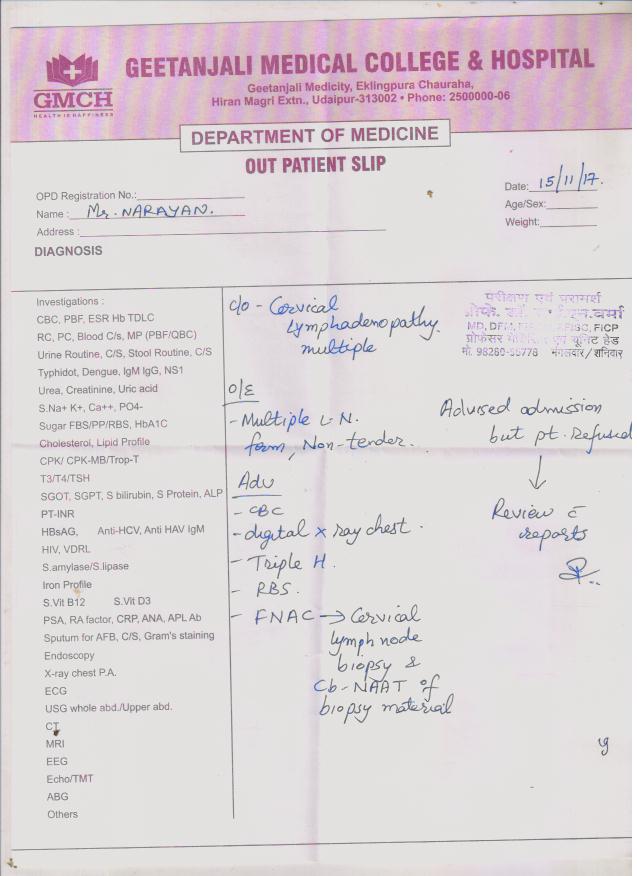 GMCH
HEALTH IS HAPPINESS
GEETANJALI MEDICAL COLLEGE & HOSPITAL
Geetanjali Medicity, Eklingpura Chauraha,
Hiran Magri Extn., Udaipur-313002 • Phone: 2500000-06
DEPARTMENT OF MEDICINE
OUT PATIENT SLIP
OPD Registration No.:
Date: 15/11/17.
Name : Mr. NARAYAN.
Age/Sex:
Address :
Weight:
DIAGNOSIS
Investigations :
CBC, PBF, ESR Hb TDLC
RC, PC, Blood C/s, MP (PBF/QBC)
Urine Routine, C/S, Stool Routine, C/S
Typhidot, Dengue, IgM IgG, NS1
Urea, Creatinine, Uric acid
S.Na+ K+, Ca++, PO4-
Sugar FBS/PP/RBS, HbA1C
Cholesterol, Lipid Profile
CPK/ CPK-MB/Trop-T
T3/T4/TSH
SGOT, SGPT, S bilirubin, S Protein, ALP
PT-INR
HBsAG, Anti-HCV, Anti HAV IgM
HIV, VDRL
S.amylase/S.lipase
Iron Profile
S.Vit B12 S.Vit D3
PSA, RA factor, CRP, ANA, APL Ab
Sputum for AFB, C/S, Gram's staining
Endoscopy
X-ray chest P.A.
ECG
USG whole abd./Upper abd.
CT
MRI
EEG
Echo/TMT
ABG
Others
c/o - Cervical
lymphadenopathy.
multiple
O/E
- Multiple L.N.
form, Non-tender.
Adv
- CBC
- digital x ray chest.
- Triple H.
- RBS.
- FNAC → Cervical
lymph node
biopsy &
Cb-NAAT of
biopsy material
परीक्षण एवं परामर्श
वर्मा
MD, FICP
प्रोफेसर एवं यूनिट हेड
मो. 98260-55778 मंगलवार/शनिवार
Advised admission
but pt. Refused
↓
Review c̄
reports